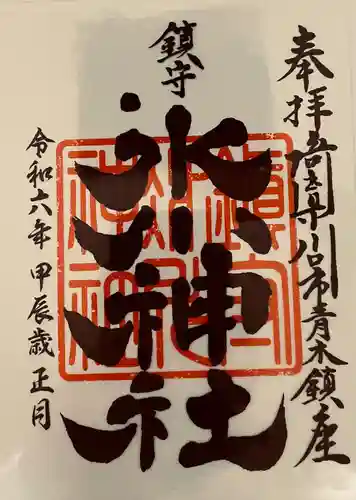 奉拝
埼玉県川口市青木鎮座
鎮守
氷川神社
令和六年 甲辰歳 正月